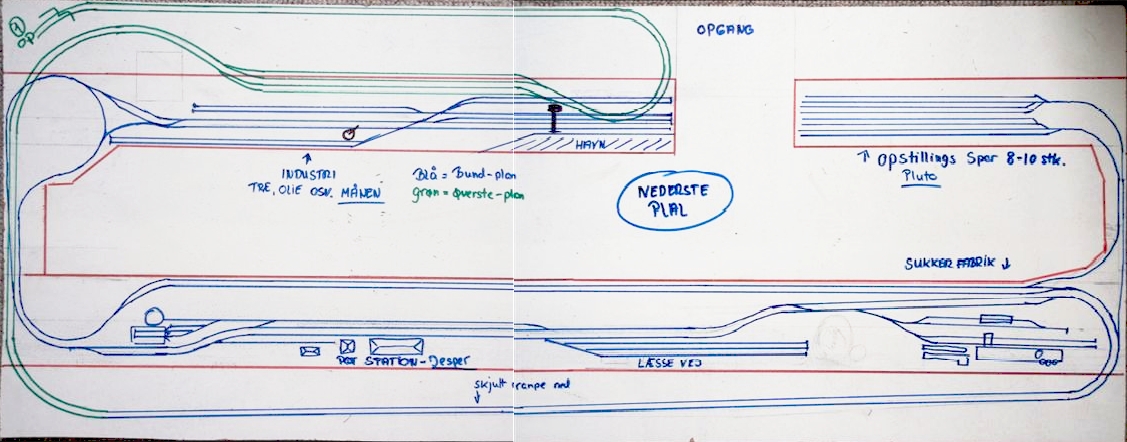 1
OP
OPGANG
INDUSTRI
TRE, OLIE OSV. MÅNEN
Blå = Bund-plan
grøn = øverste-plan
HAVN
NEDERSTE
PLAL
↑ Opstillings Spor 8-10 stk.
Pluto
SUKKER FABRIK ↓
STATION-Jesper
LÆSSE VEJ
skjult rampe ned